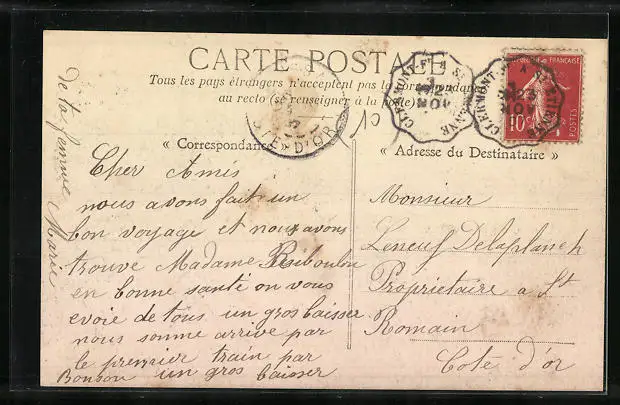 CARTE POSTALE
Tous les pays étrangers n'acceptent pas la correspondance
au recto (se renseigner à la poste)
« Correspondance »
« Adresse du Destinataire »
CLERMONT-F A ST ETIENNE
NOV
CLERMONT-F A ST ETIENNE
NOV
FRANÇAISE
10
POSTES
CÔTE-D'OR
10
Cher Amis
nous avons fait un
bon voyage et nous avons
trouve Madame Risiboulou
en bonne santé on vous
evoie de tous un gros baisser
nous somme arrive par
le premier train par
Bonson un gros baisser
de ta femme Marie
Monsieur
Leneuf Delaplanch
Propriétaire a St
Romain
Cote d'or